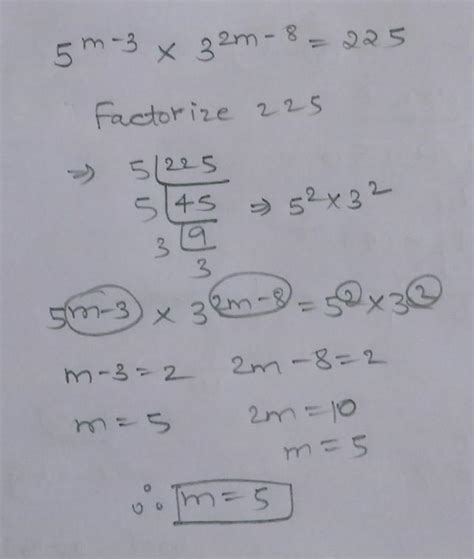 5^{m-3} × 3^{2m-8} = 225
Factorize 225
⇒ 5 | 225
5 | 45 ⇒ 5^2 × 3^2
3 | 9
3
5^{m-3} × 3^{2m-8} = 5^2 × 3^2
m-3=2 2m-8=2
m=5 2m=10
m=5
∴ m=5